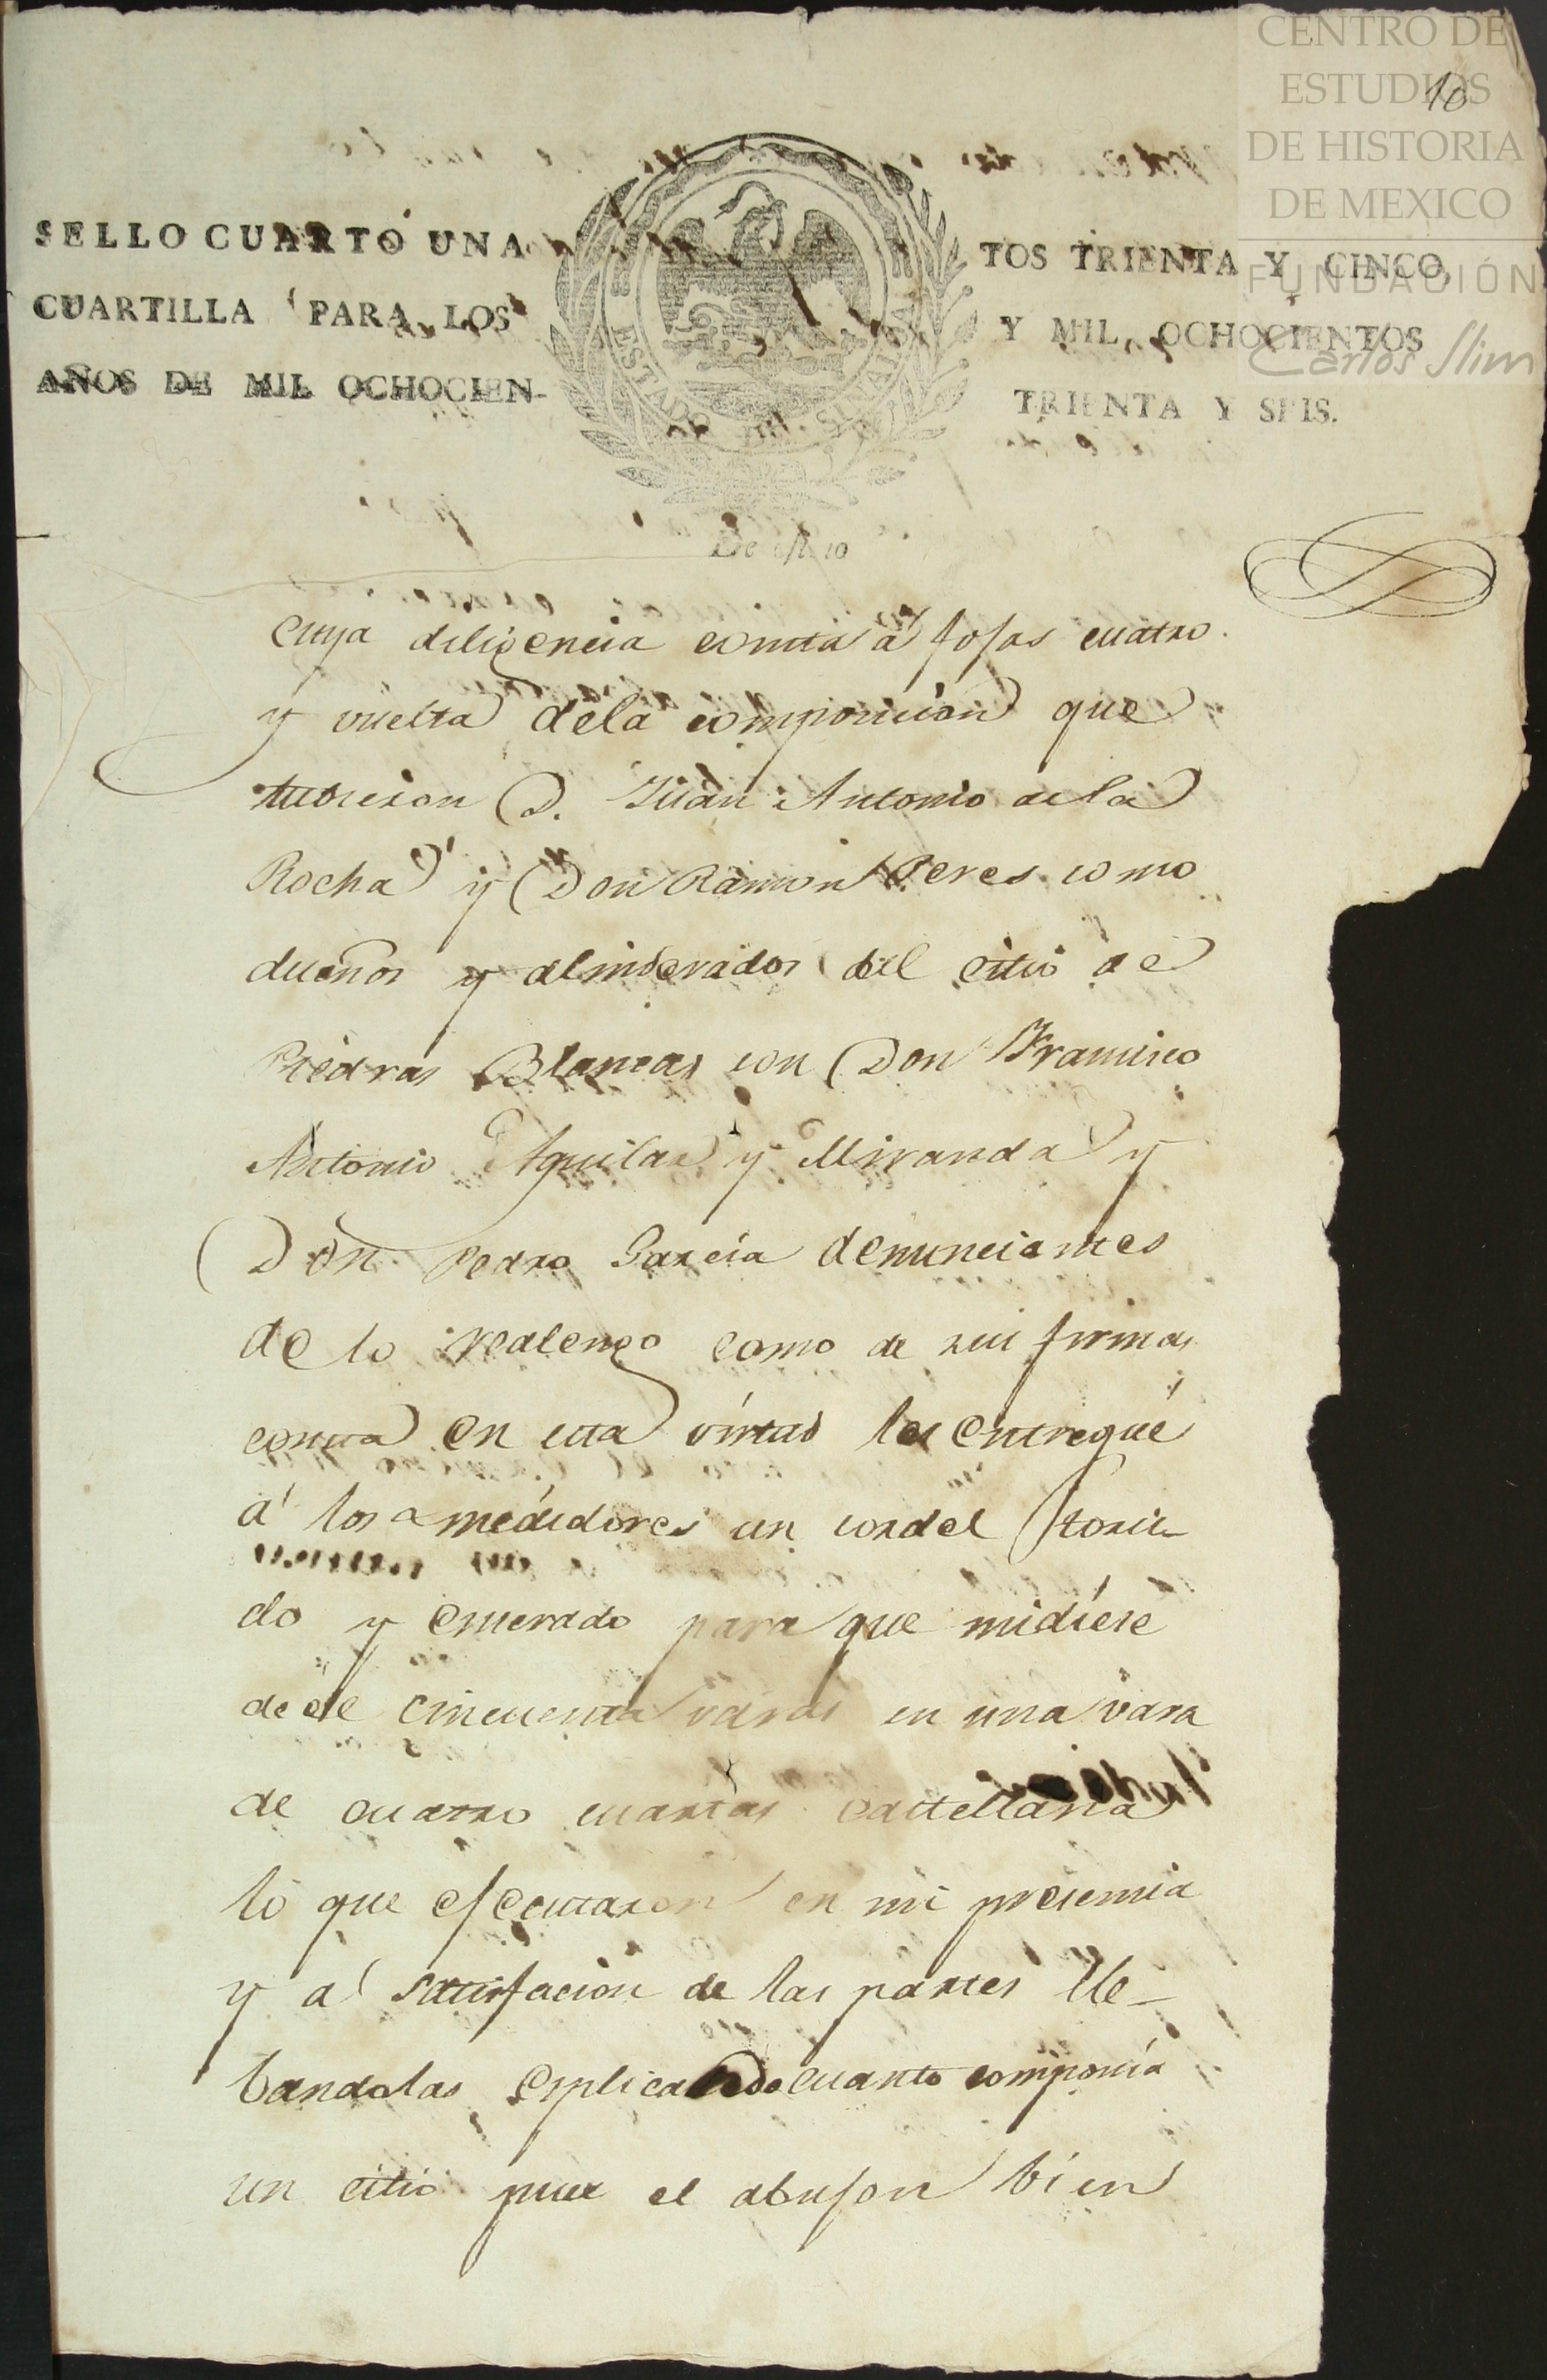 CENTRO DE
ESTUDIOS
DE HISTORIA
DE MEXICO
FUNDACIÓN
Carlos Slim
10
SELLO CUARTO UNA
CUARTILLA PARA LOS
AÑOS DE MIL OCHOCIEN-
TOS TRIENTA Y CINCO,
Y MIL OCHOCIENTOS
TRIENTA Y SEIS.
ESTADO DE SINALOA
De oficio
Cuya diligencia consta á fojas cuatro
y vuelta dela composicion que
tubieron D. Juan Antonio dela
Rocha y Don Ramon Peres como
dueños y alinderados del citio de
Piedras Blancas con Don Francisco
Antonio Aguilar y Miranda y
Don Pedro Garcia denunciantes
de lo realengo como de sus firmas
consta en esta virtad les entregué
á los medidores un cordel torci-
do y enserado para que midiese
de él cincuenta varas en una vara
de cuatro cuartas castellana
lo que ejecutaron en mi presencia
y a satisfacion de las partes lle-
bandolas esplicado cuanto componía
un citio pues el abujon bien